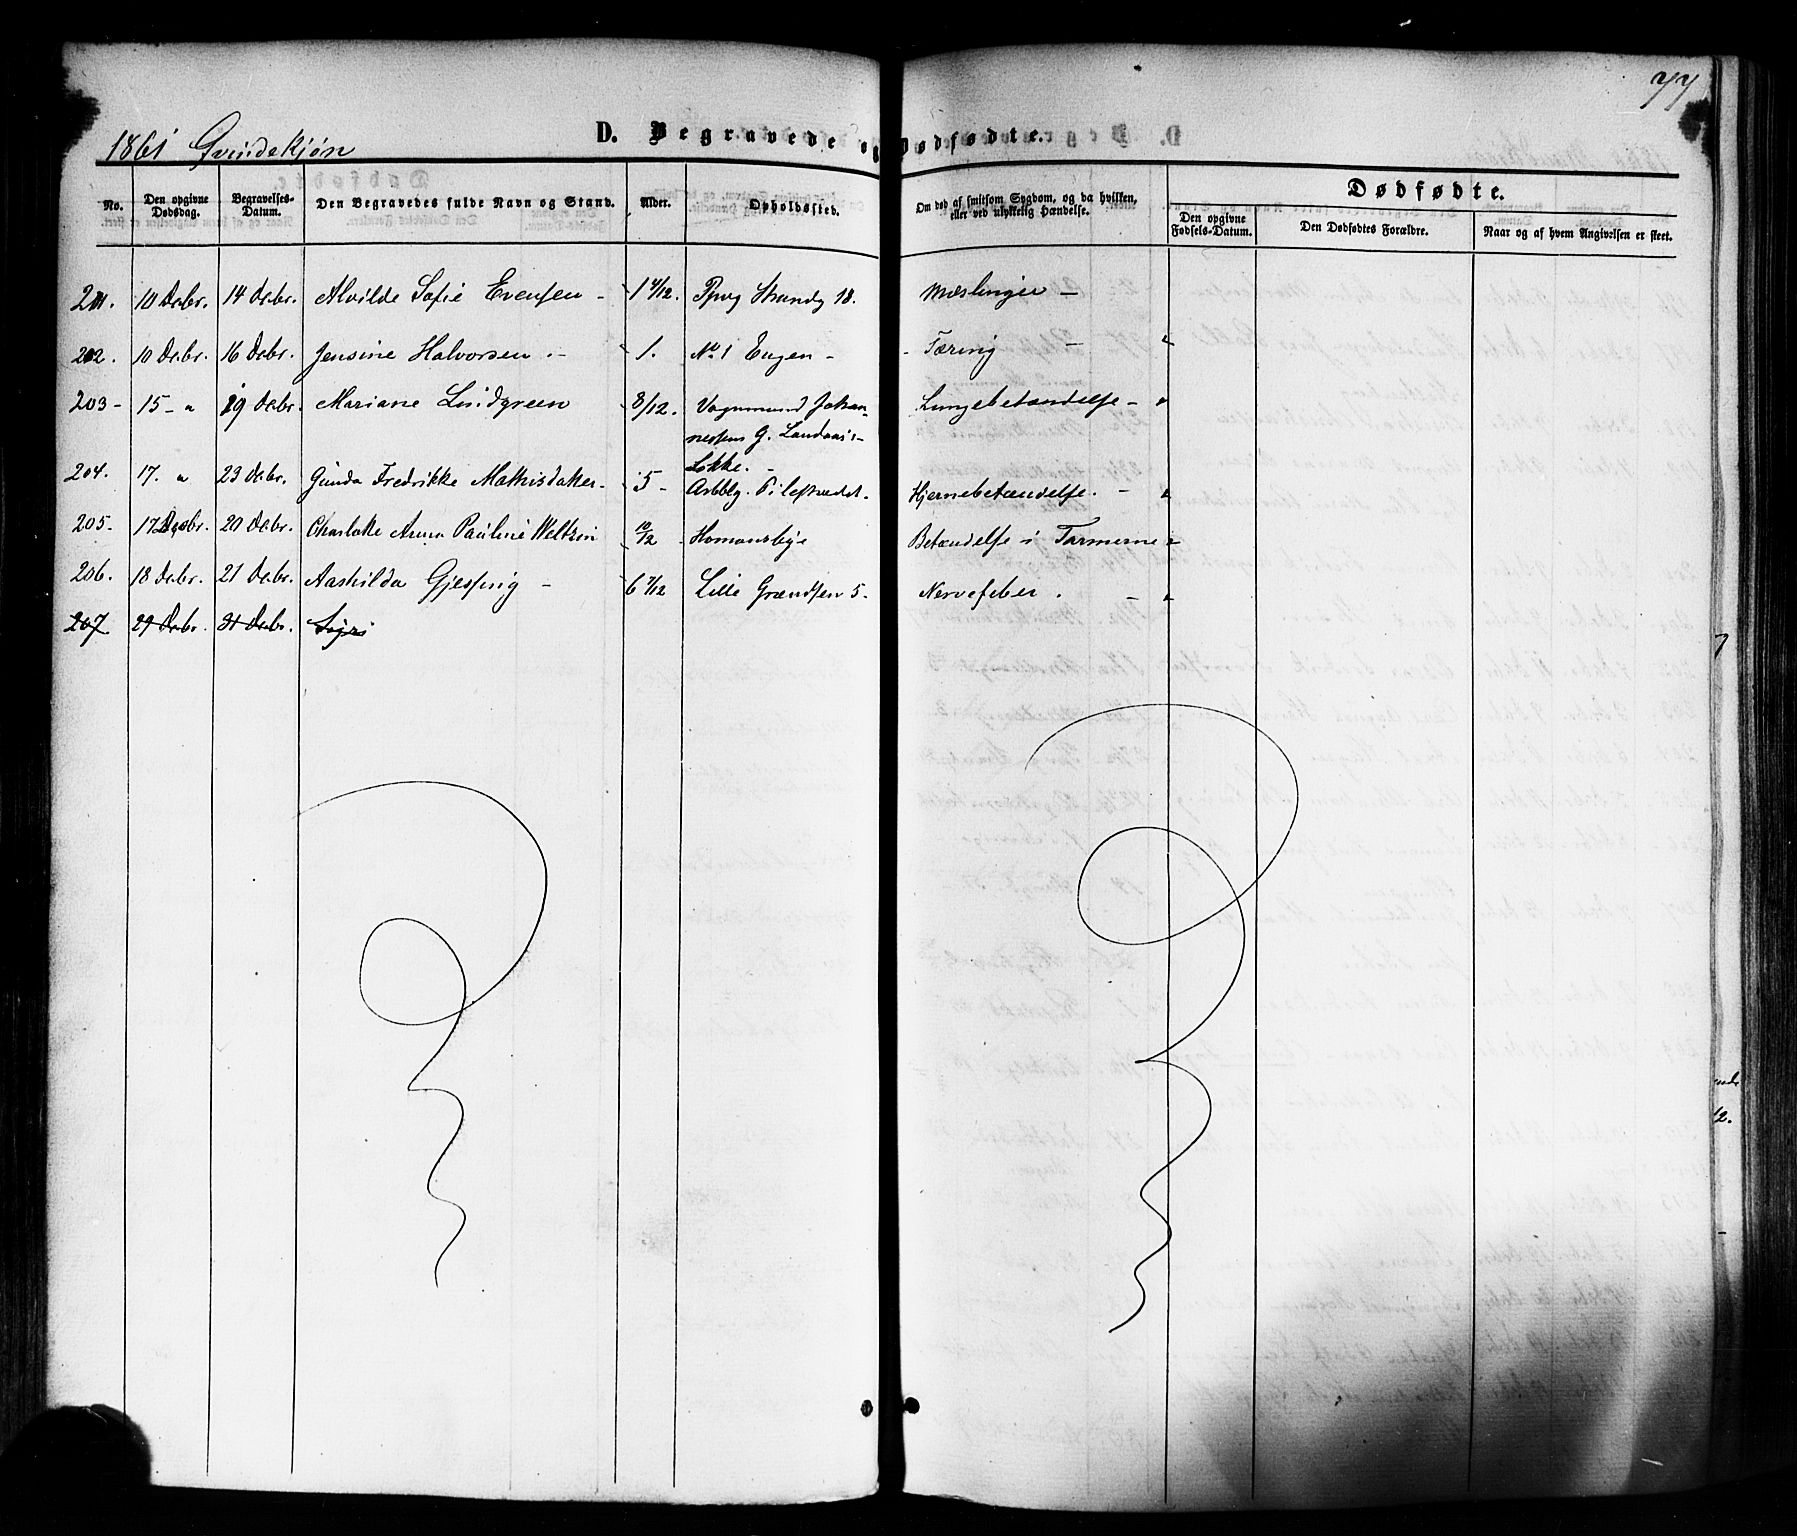 77
1861 Qvindekjøn
D. Begravede og Dødfødte.
No. Den opgivne Dødsdag. Begravelses-Datum. Den Begravedes fulde Navn og Stand. Alder. Opholdssted. Om død af smitsom Sygdom, og da hvilken, eller ved ulykkelig Hændelse. Dødfødte.
Den opgivne Fødsels-Datum. Den Dødfødtes Forældre. Naar og af hvem Angivelsen er skeet.
201. 10 Decbr. 14 Decbr. Alvilde Sofie Evensen - 1 4/12. Ppvg Strandg 18. Mæslinger -
202. 10 Decbr. 16 Decbr. Jensine Halvorsen. - 1. No 1 Engen - Tæring - "
203 - 15 - " 19 Decbr. Mariane Lindgreen 8/12. Vognmand Johan-
nessens G. Landaas's-
Løkke. - Lungebetændelse - "
204. 17. " 23 Decbr. Gunda Fredrikke Mathisdatter - 5 - Arbbg. Pilestrædet. Hjernebetændelse. - "
205. 17 Decbr. 20 Decbr. Charlotte Anna Pauline Weltzin 10/12 Homansbye Betændelse i Tarmerne "
206. 18 Decbr. 21 Decbr. Aashilda Gjessing - 6 7/12 Lille Grændsen 5. Nervefeber. - "
207. 29 Decbr. 31 Decbr.